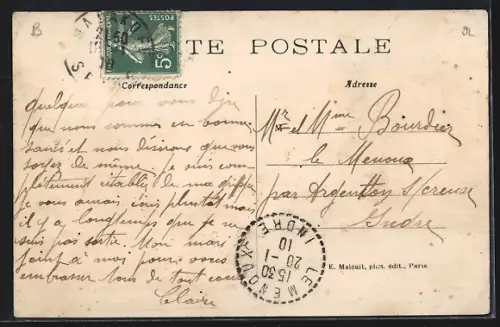 B
CARTE POSTALE
POSTES
5c
Correspondance
Adresse
quelques pour vous dire
que nous sommes en bonne
santé et nous désirons que vous
soyez de même. je suis com-
plètement rétablie de ma grippe
je vous aurais écris plus tôt mais
il y a longtemps que je ne
suis pas sortie. Mon mari se
joint à moi pour vous
embrasser tous de tout cœur
Claire
Mr et Mme Bourdier
le Menoux
par Argenton s/creuse
Indre
LE MENOUX
INDRE
15 30
20 - 1
10
E. Malcuit, phot. édit., Paris